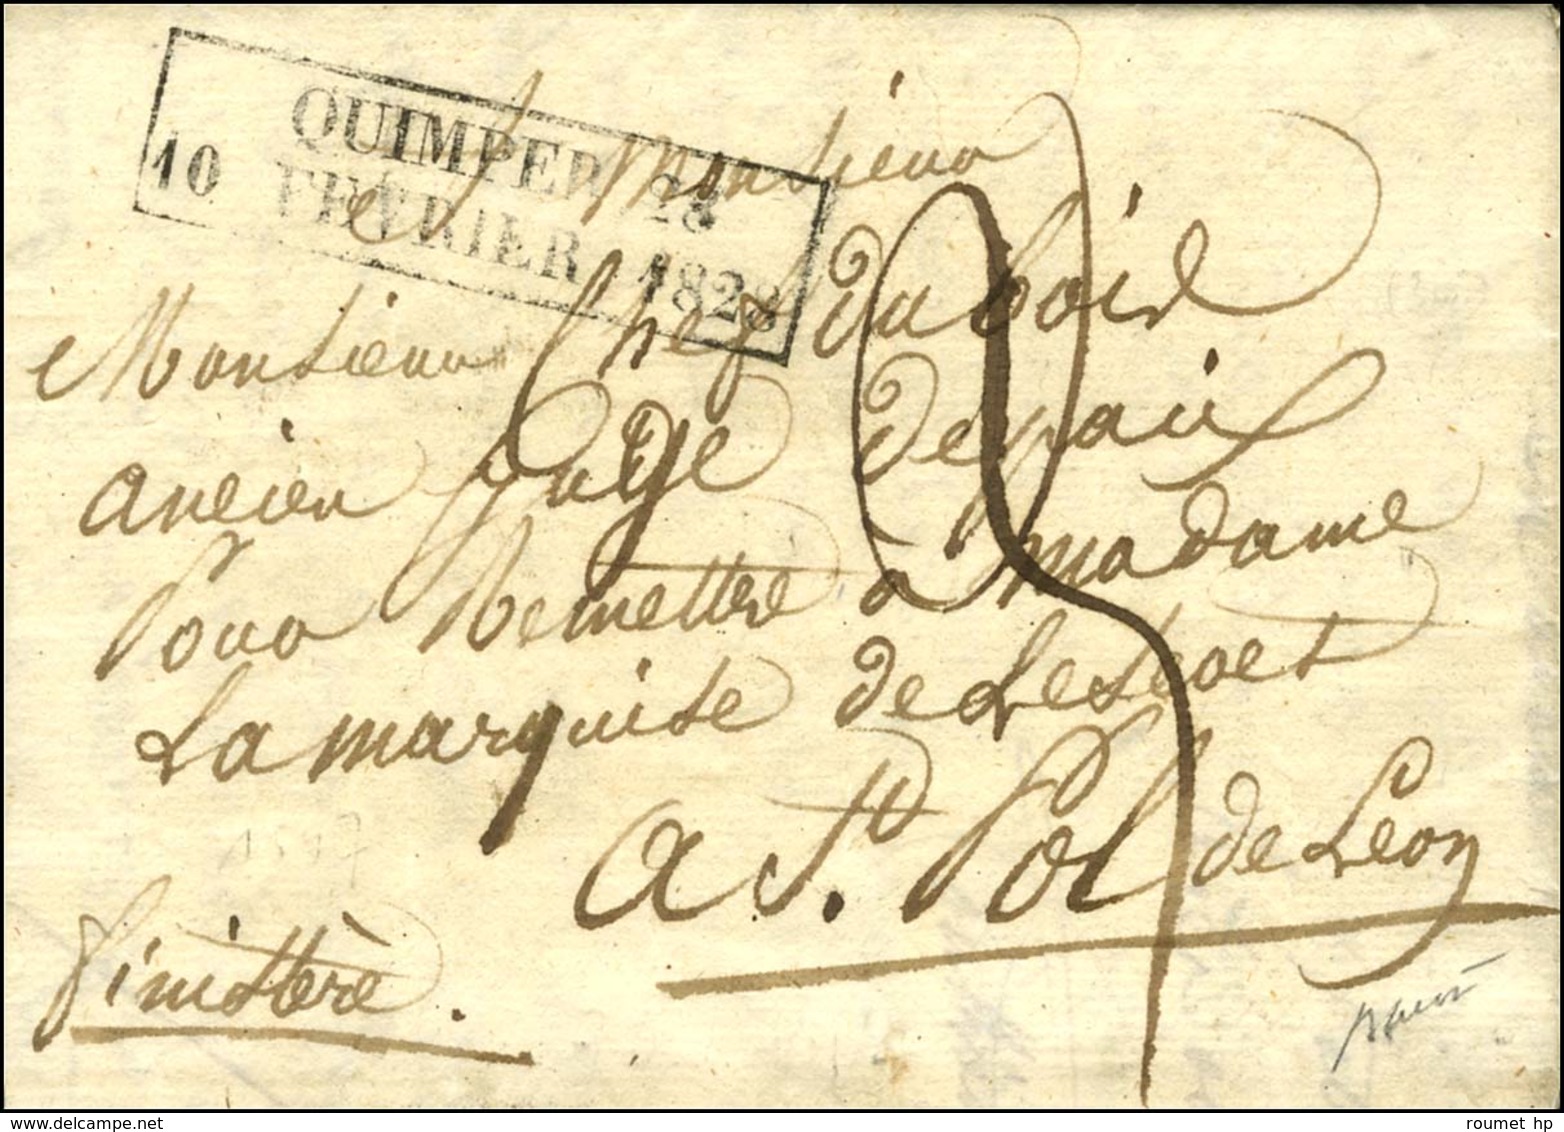 QUIMPER 28
10 FEVRIER 1828
A Monsieur
Monsieur Chef du bois
ancien Juge de paix
Pour Remettre à Madame
La marquise de Lescoet
a St. Pol de Léon
finistère.
roumet hp